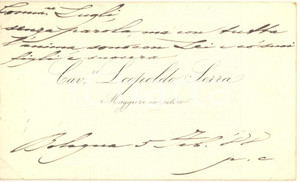 Comm. Luglj
senza parola ma con tutta
l'anima sono con Lei e coi suoi
figli e suocera
Cav. Leopoldo Serra
Maggiore in ritiro
Bologna 5 Feb. 88
p. c